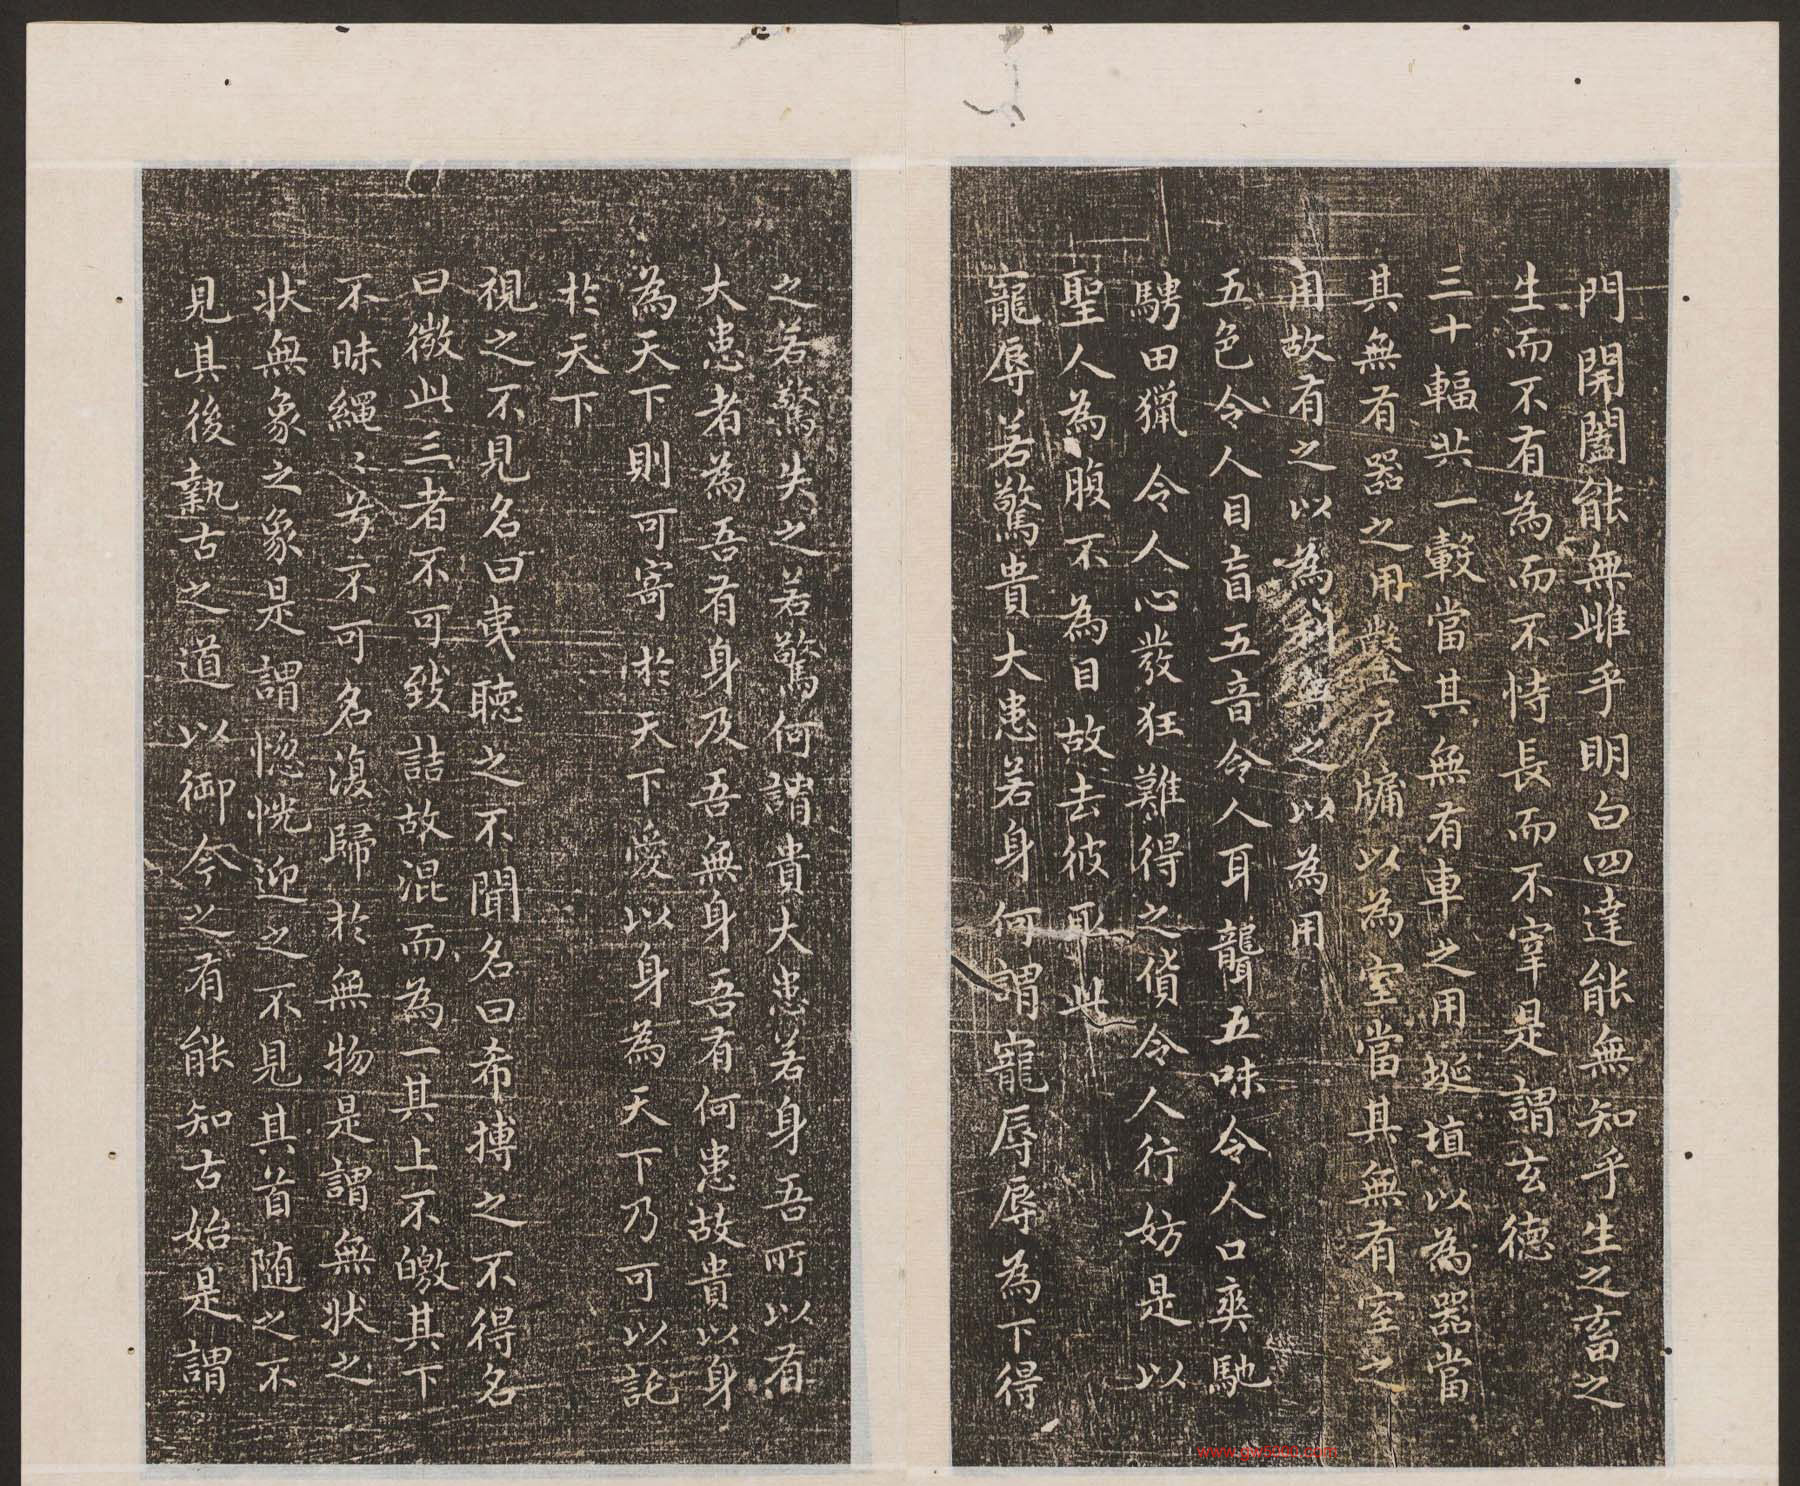 門開闔能無雌乎明白四達能無知乎生之畜之
生而不有為而不恃長而不宰是謂玄德
三十輻共一轂當其無有車之用埏埴以為器當
其無有器之用鑿戶牖以為室當其無有室之
用故有之以為利無之以為用
五色令人目盲五音令人耳聾五味令人口爽馳
騁田獵令人心發狂難得之貨令人行妨是以
聖人為腹不為目故去彼取此
寵辱若驚貴大患若身何謂寵辱辱為下得
之若驚失之若驚何謂貴大患若身吾所以有
大患者為吾有身及吾無身吾有何患故貴以身
為天下則可寄於天下愛以身為天下乃可以託
於天下
視之不見名曰夷聽之不聞名曰希搏之不得名
曰微此三者不可致詰故混而為一其上不皦其下
不昧繩〻兮不可名復歸於無物是謂無狀之
狀無象之象是謂惚恍迎之不見其首隨之不
見其後執古之道以御今之有能知古始是謂